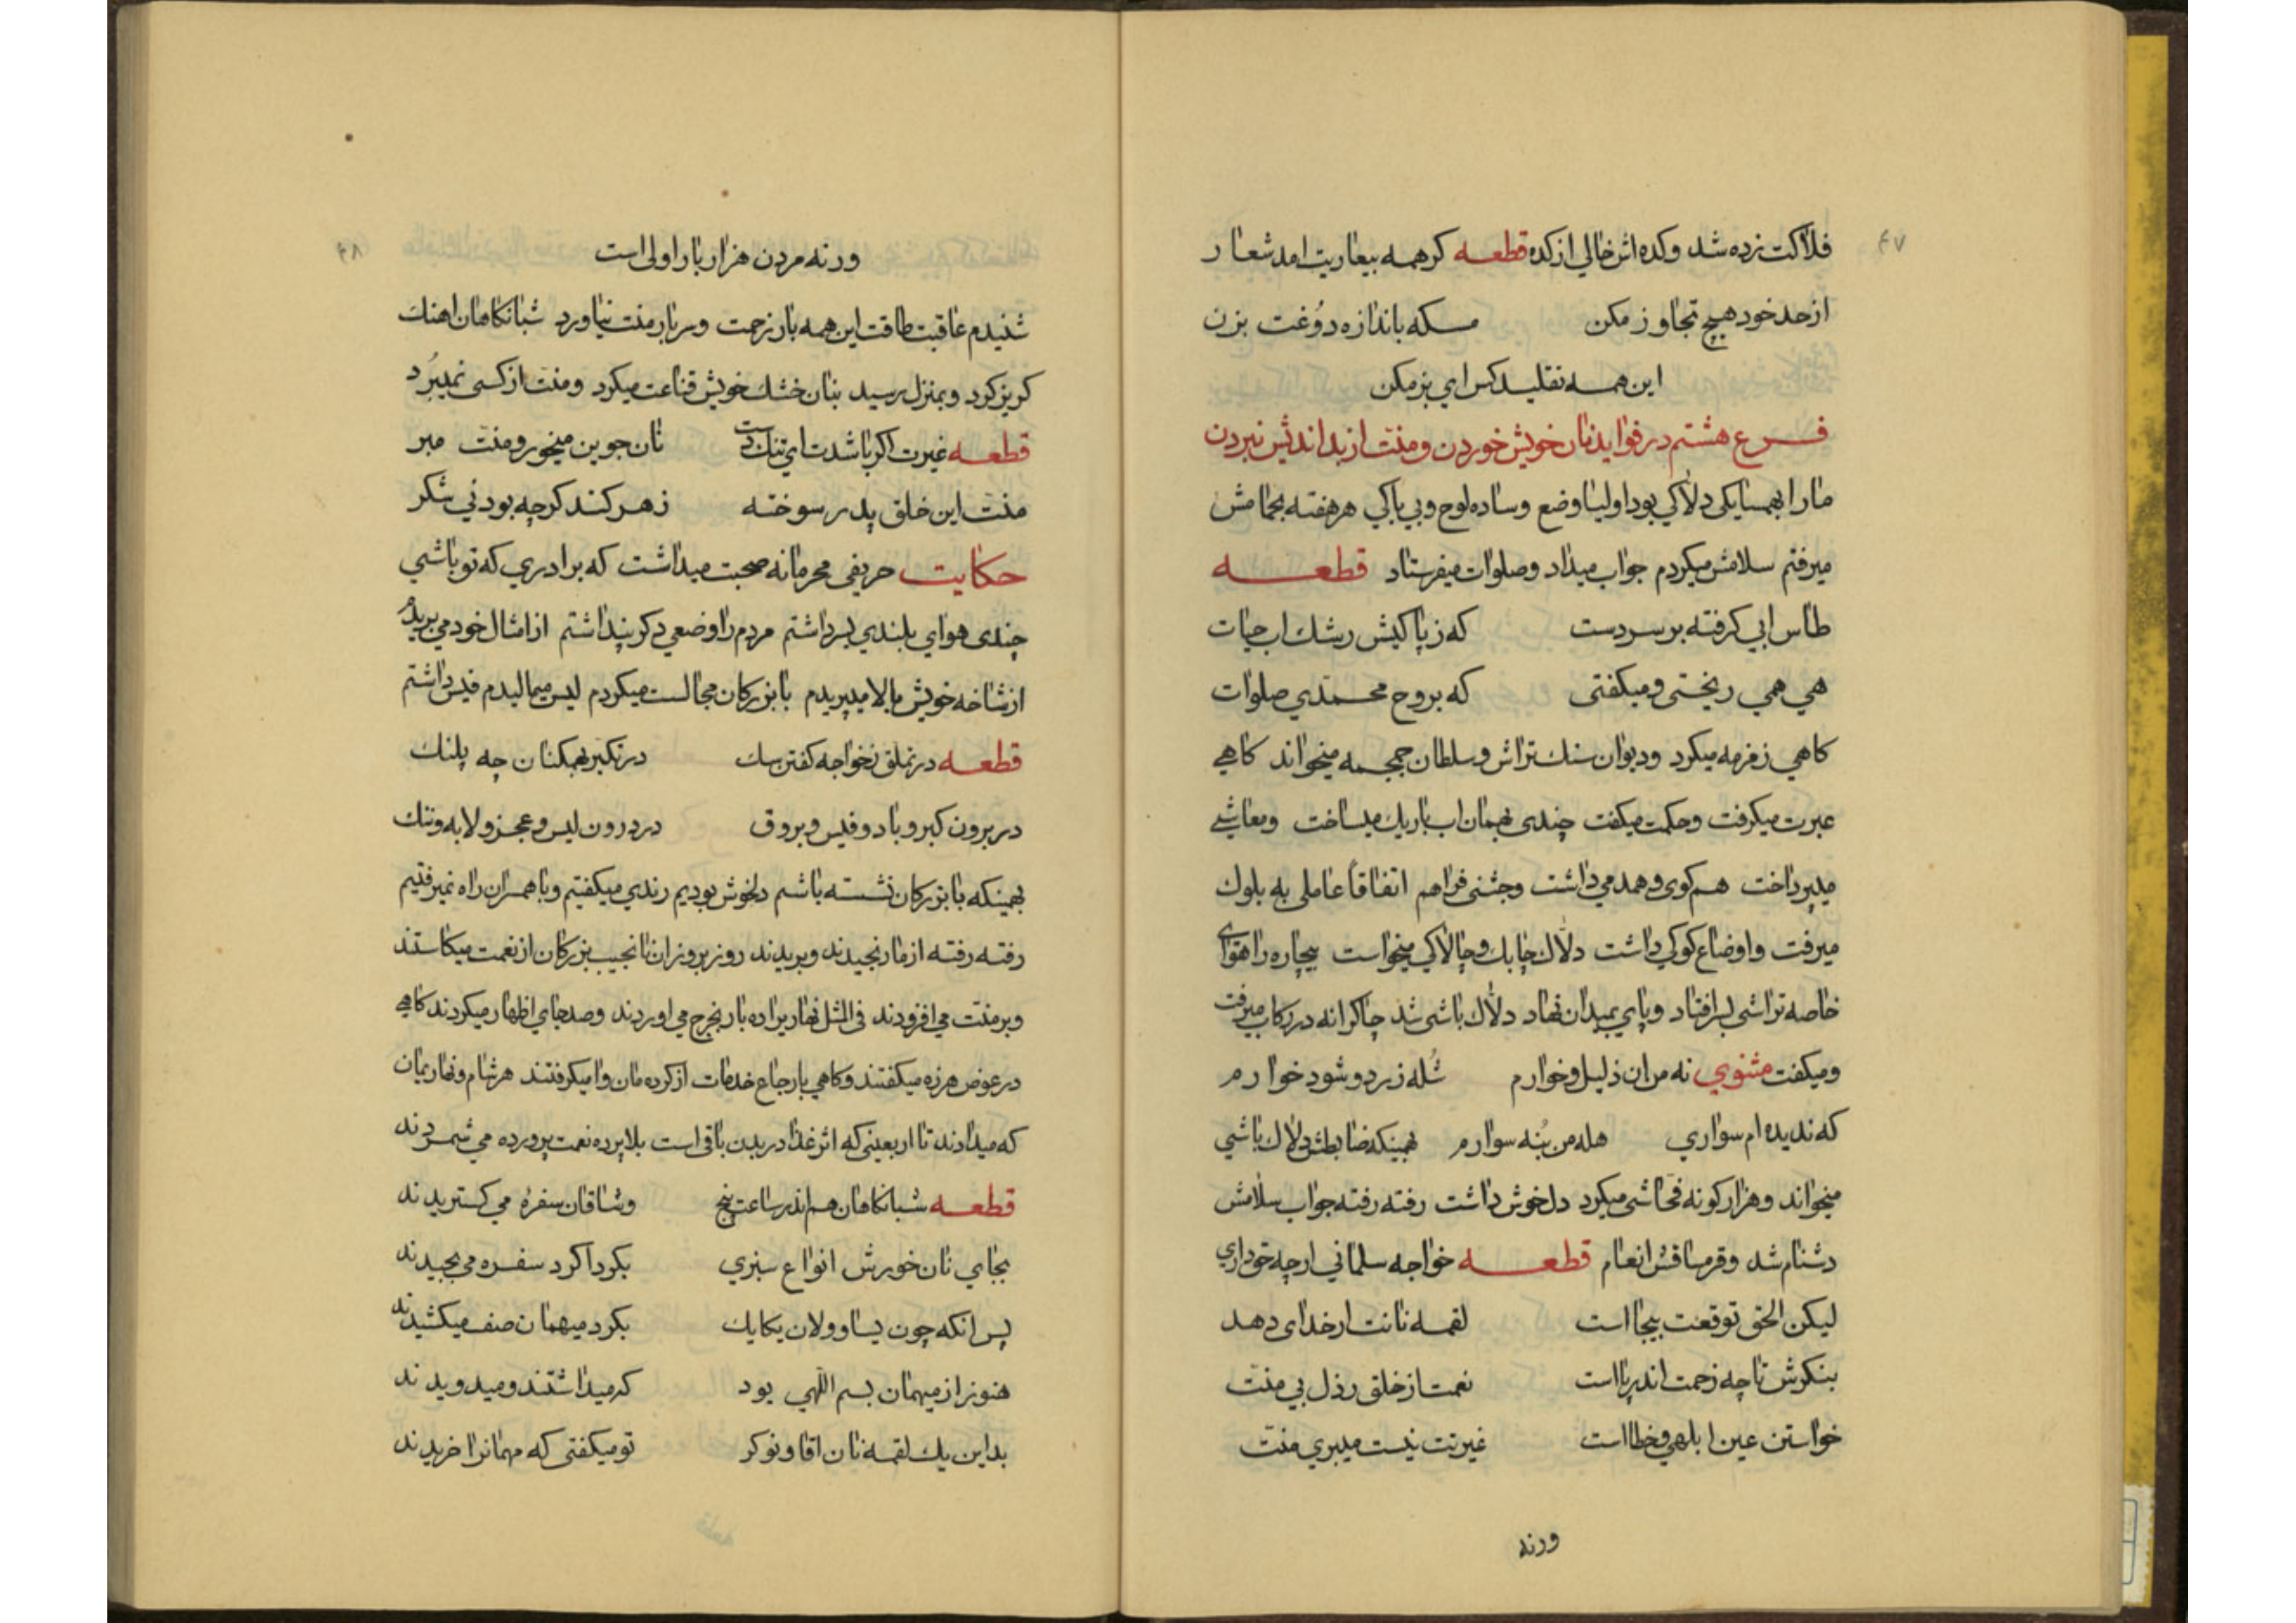 ۴۷
فلاکت زده شد وکده اش خالی از کده قطعه کرهمه بیعاریت امد شعار
از حد خود هیچ تجاوز مکن مسکه باندازه دُوغت بزن
این همه تقلید کس ای بز مکن
فرع هشتم در فواید نان خویش خوردن و منت از بداندیش نبردن
مارا بهمسایکی دلاکی بود اولیا وضع وساده لوح وبی باکی هرهفته بحمامش
میرفتم سلامش میکردم جواب میداد وصلوات میفرستاد قطعه
طاس ابی کرفته بر سر دست که ز پاکیش رشك اب حیات
هی همی ریختی ومیکفتی که بروح محمدی صلوات
کاهی زمزمه میکرد ودیوان سنك تراش وسلطان جمجمه میخواند کاهی
عبرت میکرفت وحکمت میکفت چندی بهمان اب باریك میساخت ومعاشی
میپرداخت هم کوی وهمدمی داشت وجشنی فراهم اتفاقاً عاملی به بلوك
میرفت واوضاع کوکی داشت دلاك چابك وچالاکی میخواست بیچاره را هوای
خاصه تراشی بسر افتاد وپای بمیدان نهاد دلاك باشی شد چاکرانه در رکاب میرفت
ومیکفت مثنوی نه من ان ذلیل وخوارم شُله زرد وشود خوارم
که ندیده ام سواری هله من بُنه سوارم همینکه ضابطش دلاك باشی
میخواند وهزار کونه فحاشی میکرد دلخوش داشت رفته رفته جواب سلامش
دشنام شد وقرمساقش انعام قطعه خواجه سلمانی ارچه حق داری
لیکن الحق توقعت بیجا است لقمه نانت ار خدای دهد
بنکرش تا چه زحمت اندر پا است نعمت از خلق رذل بی منت
خواستن عین ابلهی وخطا است غیرتت نیست میبری منت
ورنه
۴۸
ورنه مردن هزار بار اولی است
شنیدم عاقبت طاقت این همه بار زحمت وسربار منت نیاورد شبانکاهان اهنك
کریز کرد وبمنزل رسید بنان خشك خویش قناعت میکرد ومنت از کسی نمیبُرد
قطعه غیرت اکر باشدت ای تنك دست نان جوین میخور ومنت مبر
منت این خلق پدر سوخته زهر کند کرچه بود نی شکر
حکایت حریفی محرمانه صحبت میداشت که برادری که تو باشی
چندی هوای بلندی بسر داشتم مردم را وضعی دکر پنداشتم از امثال خود می بریدم
از شاخه خویش بالا میپریدم با بزرکان مجالست میکردم لیس میمالیدم فیس داشتم
قطعه در تملق بخواجه کفتن سك در تکبر بهمکنان چه پلنك
در برون کبر وباد وفیس وبروق در درون لیس وعجز ولابه وننك
بهمینکه با بزرکان نشسته باشم دلخوش بودیم رندی میکفتیم وبا همسران راه نمیرفتیم
رفته رفته از ما رنجیدند وبریدند روز بروز ان نانجیب بزرکان از نعمت میکاستند
وبر منت می افزودند فی المثل نهار براده بار بخرج می اوردند وصد جای اظهار میکردند کاهی
در عوض هرزه میکفتند وکاهی بارجاع خدمات از کرده مان وامیکرفتند هر شام ونهاریمان
که میدادند تا اربعینی که اثر غذا در بدن باقی است بلا پرده نعمت پرورده می شمردند
قطعه شبانکاهان هم اندر ساعت پنج وشاقان سفرهٔ می کستریدند
بجای نان خورش انواع سبزی بکرداکرد سفره می چیدند
پس انکه چون یساوولان یکایك بکرد میهمان صف میکشیدند
هنوز از میهمان بسم اللهی بود که میداشتند ومیدویدند
بداین یك لقمه نان اقا ونوکر تو میکفتی که مهمانرا خریدند